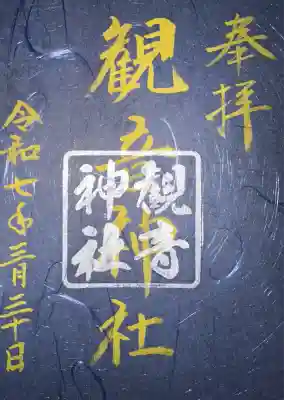 奉拝
観音神社
觀音
神社
令和七年三月三十日